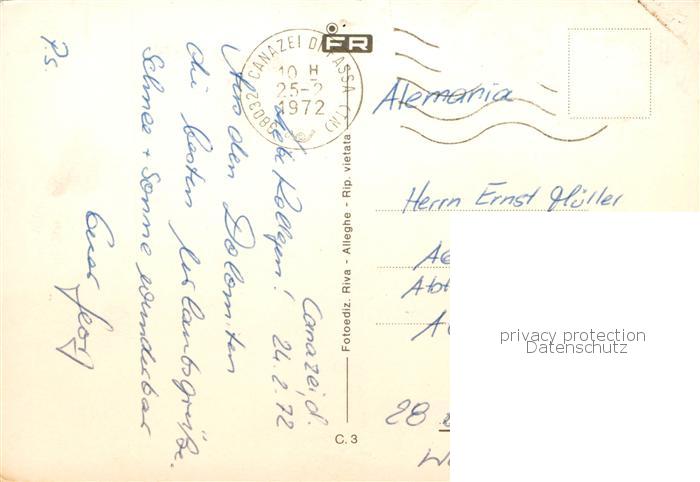 Canazei, d.
24.2.72
Liebe Kollegen!
Aus den Dolomiten
die besten Urlaubsgrüße.
Schnee + Sonne wunderbar
Euer Georg
P.S.
38032 CANAZEI DI FASSA (TN)
10 H
25-2
1972
FR
Fotoediz. Riva - Alleghe - Rip. vietata
C. 3
Alemania
Herrn Ernst Müller
28
privacy protection
Datenschutz